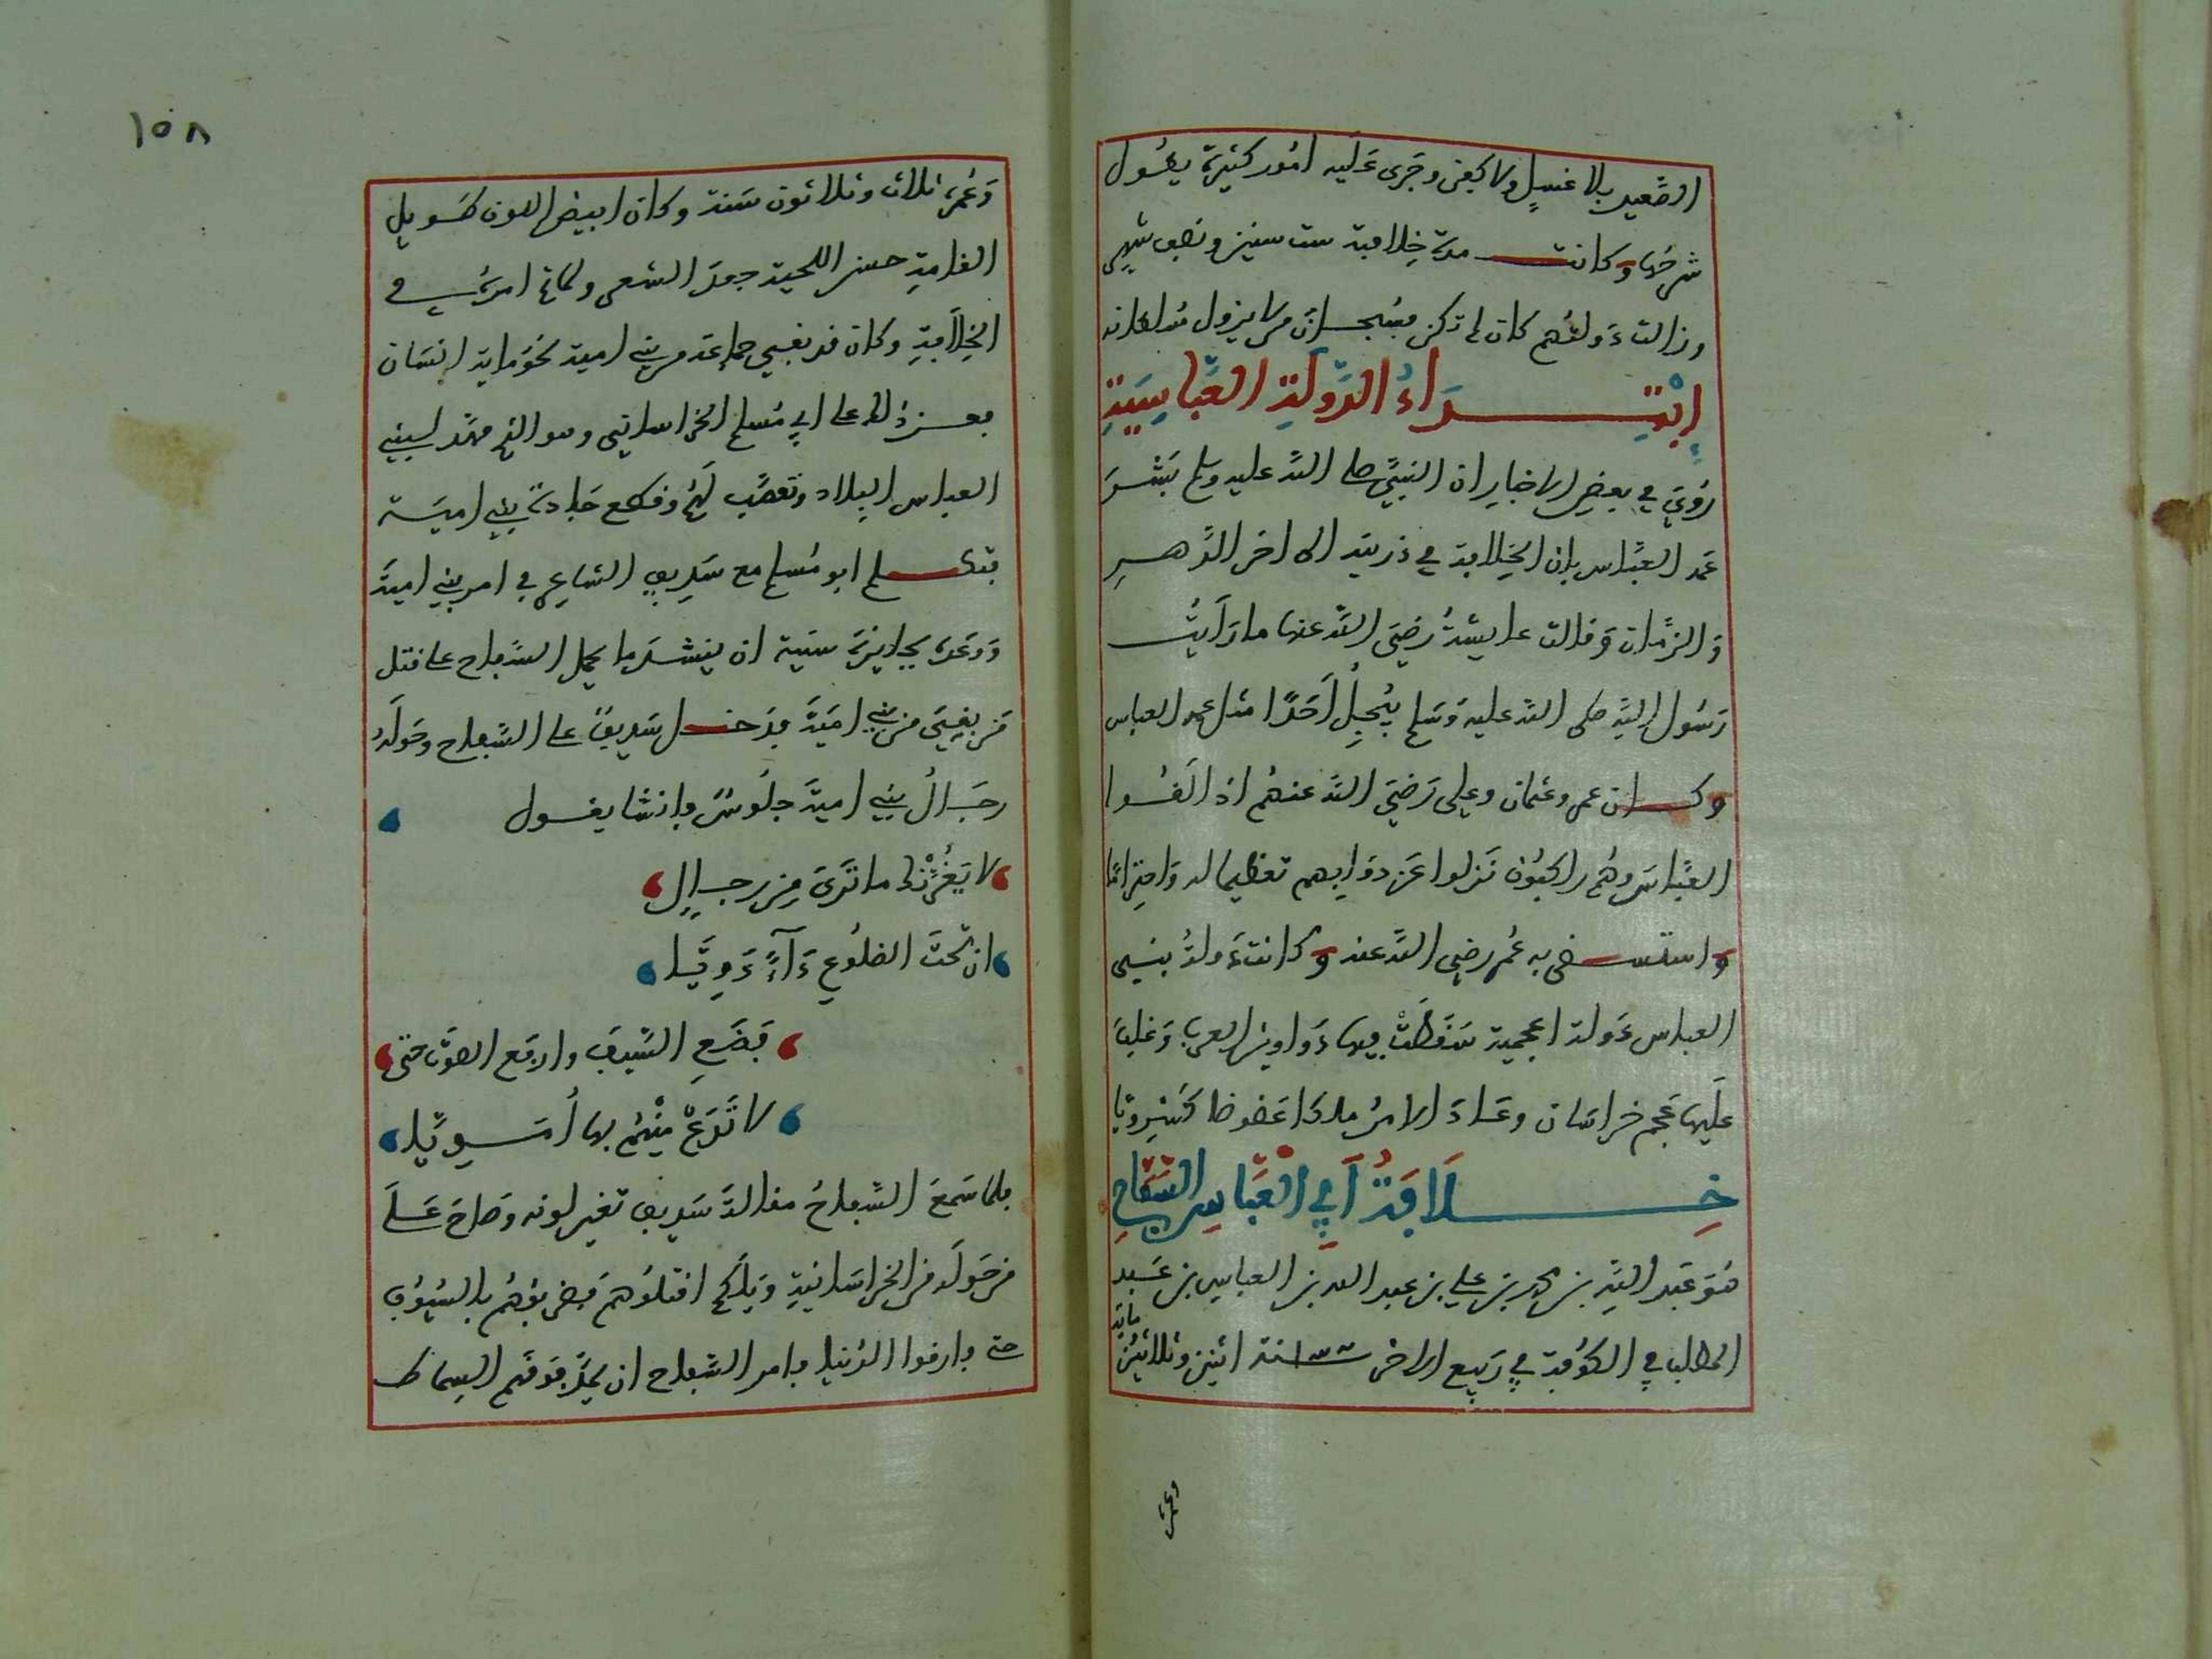 الصعيد بلا غسل ولا كفن وجرى عليه امور كثيرة يطول
شرحها وكانت مدة خلافته ست سنين ونصف شهر
وزالت دولتهم كان لم تكن فسبحان من لا يزول سلطانه
اِبْتِدَاءُ الدَّوْلَةِ العَبَّاسِيَّةِ
رُوِيَ في بعضِ الاخبارِ ان النبيَّ صلى الله عليه وسلم بَشَّرَ
عَمه العبَّاس بان الخِلافة في ذريته الى اخر الدَّهرِ
وَالزمان وَقالت عايشةُ رَضِيَ اللّه عنها ما رَاَيتُ
رَسُول الله صلى الله عليه وَسَلم يُجِلُّ اَحَدًا مثل عمه العباس
وكان عمر وعثمان وعلى رَضِيَ الله عنهُم اذا لَقُوا
العبَّاسَ وهُم راكبُون نَزلوا عَن دوَابهم تعظيما له وَاحتِرامًا
واستسقى به عُمر رضي الله عنه وكانت دَولةُ بني
العباس دَولة اعجمية سَقَطَتْ فيها دَوَاوين العرب وَغلبَ
عَلَيها عَجم خراسَان وعَادَ الامرُ ملكا عَضُوضا كَسْرويا
خِلَافَةُ أَبِي الْعَبَّاسِ السَّفَّاحِ
هُوَ عَبد اللهِ بن محمد بن علي بن عبد الله بن العباس بن عَبد
المطلب في الكوُفة في رَبيع الاخر سنة اثنين وثلاثين
ماية
وعمره
١٥٨
وَعُمره ثلاث وثلاثون سَنة وكان ابيض اللون طَويل
القامةِ حسن اللحية جعدَ الشعر ولما تم امرهُ في
الخِلاَفةِ وكان قد بقى جماعَة من بني امية نحوُ ماية انسَان
فعز ذلك على ابي مُسلم الخراساني وهو الذي مهَّد لبني
العباس البلاد وتعصَّب لهُم وقطع جادةَ بني اميَة
فتكلم ابو مُسلم مع سَديفٍ الشاعِر في امر بني اميَّة
وَوعَدَه بجايزة سَنية ان ينشد ما يحمل السَّفاح على قتل
مَن بقِيَ من بني اميَّة فدَخل سَديفٌ على السَّفاح وحَولَهُ
رجَالُ بني اميَّة جلُوسٌ فانشا يقول
لا يَغُرَّنْكَ ما تَرَى مِن رجالٍ
ان تحْتَ الضلُوعِ دَآءً دَوِيَّا
فَضَعِ السَّيفَ وارفع الصَّوتَ حتى
لا تَدَعْ مِنْهُم بها اُمَوِيَّا
فلما سَمعَ السَّفاحُ مقالةَ سَديف تغير لونه وَصَاحَ عَلى
من حَولَه من الخراسَانيةِ وَيلَكم اقتلوُهم فضربوُهُم بالسُّيُوُف
حتى فارقوا الدُنيا فامر السَّفاح ان يمدَّ فوقَهم السِماط